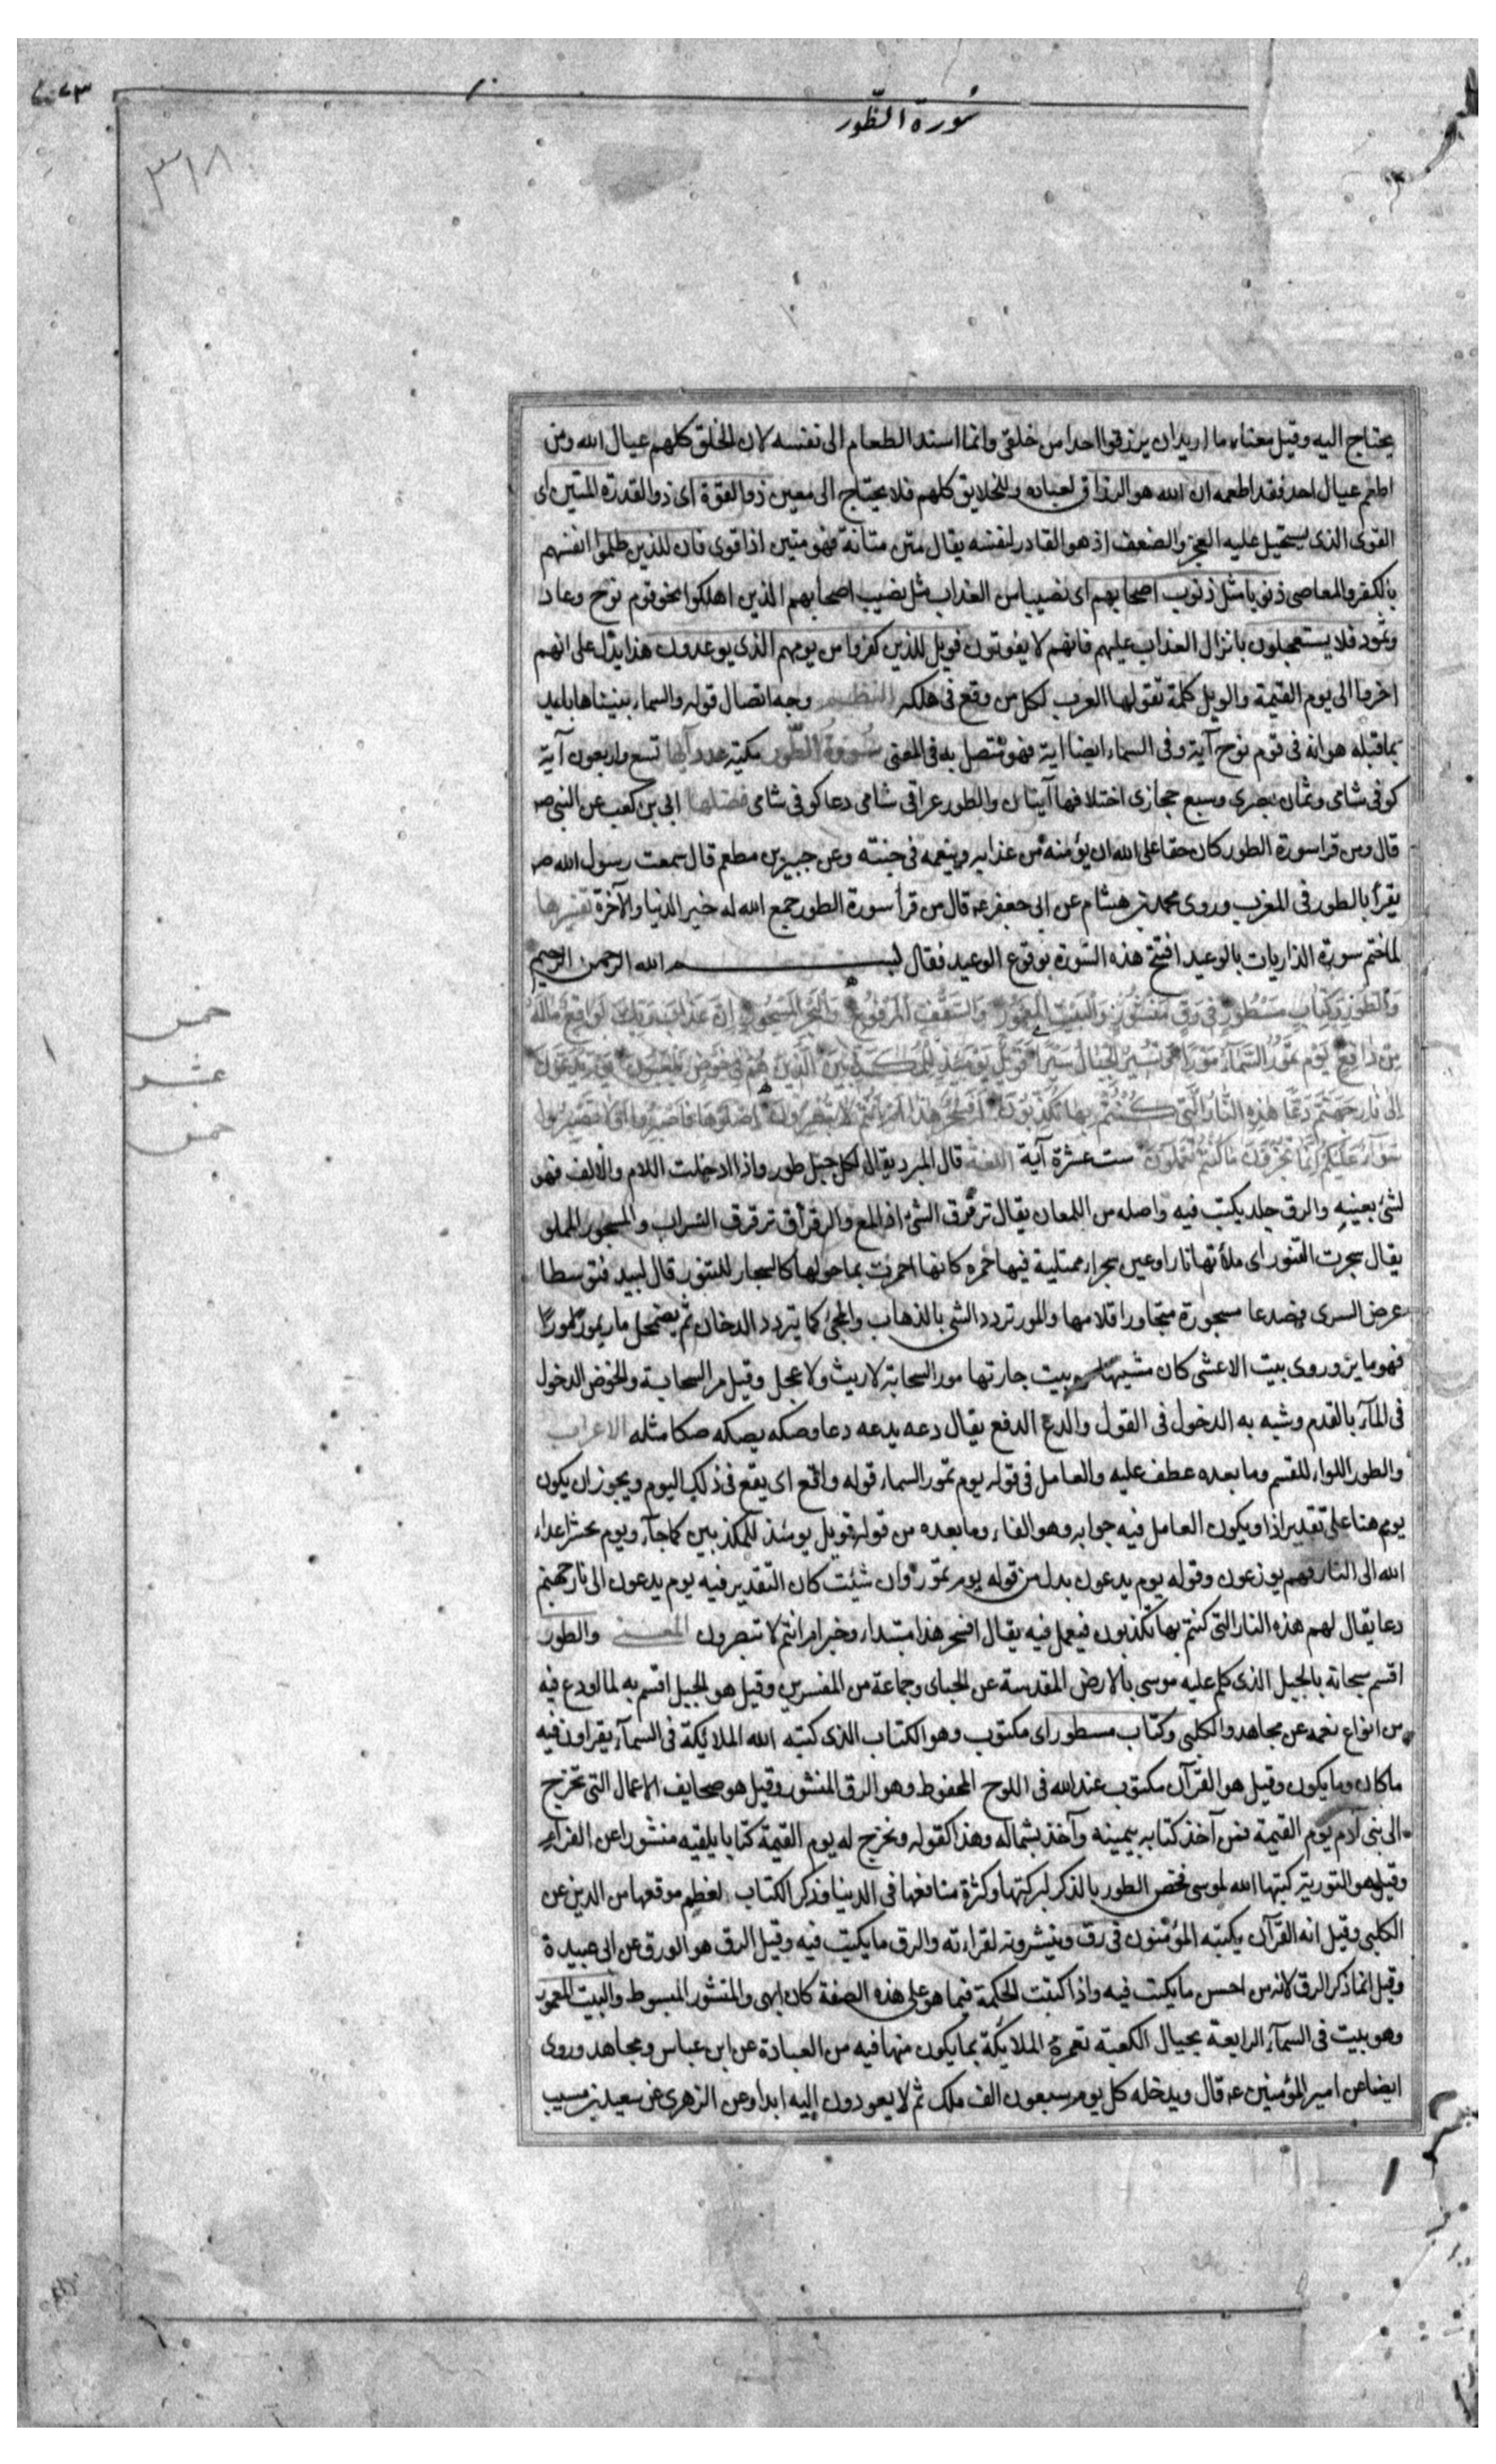 سورة الطور
٣١٨
يحتاج اليه وقيل معناه ما اريد ان يرزقوا احدا من خلقى وانما اسند الطعام الى نفسه لان الخلق كلهم عيال الله ومن
اطعم عيال احد فقد اطعمه ان الله هو الرزاق لعباده وللخلايق كلهم فلا يحتاج الى معين ذو القوة اى ذو القدرة المتين اى
القوى الذى يستحيل عليه العجز والضعف اذ هو القادر لنفسه يقال متن متانة فهو متين اذا قوى فان للذين ظلموا انفسهم
بالكفر والمعاصى ذنوبا مثل ذنوب اصحابهم اى نصيبا من العذاب مثل نصيب اصحابهم الذين اهلكوا نحو قوم نوح وعاد
وثمود فلا يستعجلون بانزال العذاب عليهم فانهم لا يفوتون فويل للذين كفروا من يومهم الذى يوعدون هذا يدل على انهم
اخروا الى يوم القيمة والويل كلمة تقولها العرب لكل من وقع فى هلكه النظم وجه اتصال قوله والسماء بنيناها بايد
بما قبله هو انه فى قوم نوح آية وفى السماء ايضا اية فهو متصل به فى المعنى سورة الطور مكية عدد آيها تسع واربعون آية
كوفى شامى وثمان بصرى وسبع حجازى اختلافها آيتان والطور عراقى شامى دعا كوفى شامى فضلها ابى بن كعب عن النبى ص
قال ومن قرا سورة الطور كان حقا على الله ان يؤمنه من عذابه وينعمه فى جنته وعن جبير بن مطعم قال سمعت رسول الله ص
يقرأ بالطور فى المغرب وروى محمد بن هشام عن ابى جعفر ع قال من قرأ سورة الطور جمع الله له خير الدنيا والآخرة تفسيرها
لما ختم سورة الذاريات بالوعيد افتتح هذه السورة بوقوع الوعيد فقال بسم الله الرحمن الرحيم
وَالطُّورِ وَكِتَابٍ مَسْطُورٍ فِى رَقٍّ مَنْشُورٍ وَالْبَيْتِ الْمَعْمُورِ وَالسَّقْفِ الْمَرْفُوعِ وَالْبَحْرِ الْمَسْجُورِ اِنَّ عَذَابَ رَبِّكَ لَوَاقِعٌ مَالَهُ
مِنْ دَافِعٍ يَوْمَ تَمُورُ السَّمَاءُ مَوْرًا وَتَسِيرُ الْجِبَالُ سَيْرًا فَوَيْلٌ يَوْمَئِذٍ لِلْمُكَذِّبِينَ الَّذِينَ هُمْ فِى خَوْضٍ يَلْعَبُونَ يَوْمَ يُدَعُّونَ
اِلٰى نَارِ جَهَنَّمَ دَعًّا هٰذِهِ النَّارُ الَّتِى كُنْتُمْ بِهَا تُكَذِّبُونَ اَفَسِحْرٌ هٰذَا اَمْ اَنْتُمْ لَا تُبْصِرُونَ اِصْلَوْهَا فَاصْبِرُوا اَوْ لَا تَصْبِرُوا
سَوَاءٌ عَلَيْكُمْ اِنَّمَا تُجْزَوْنَ مَا كُنْتُمْ تَعْمَلُونَ ست عشرة آية اللغة قال المبرد يقال لكل جبل طور واذا ادخلت اللام والالف فهو
لشئ بعينه والرق جلد يكتب فيه واصله من اللمعان يقال ترقرق الشئ اذا لمع والرقراق ترقرق السراب والمسجور المملو
يقال سجرت التنور اى ملأتها نارا وعين سجراء ممتلية فيها حمرة كانها احمرت بما حولها كالسجار للتنور قال لبيد فتوسطا
عرض السرى فصدعا مسجورة متجاورا قلامها والمور تردد الشى بالذهاب والمجئ كما يتردد الدخان ثم يضمحل مار يمور مورا
فهو ماير وروى بيت الاعشى كان مشيتها من بيت جارتها مور السحابة لا ريث ولا عجل وقيل مر السحابة والخوض الدخول
فى الماء بالقدم وشبه به الدخول فى القول والدع الدفع يقال دعه يدعه دعا وصكه يصكه صكا مثله الاعراب
والطور الواو للقسم وما بعده عطف عليه والعامل فى قوله يوم تمور السماء قوله واقع اى يقع فى ذلك اليوم ويجوز ان يكون
يوم هنا على تقدير اذا ويكون العامل فيه جوابه وهو الفاء وما بعده من قوله فويل يومئذ للمكذبين كما جاء ويوم يحشر اعداء
الله الى النار فهم يوزعون وقوله يوم يدعون بدل من قوله يوم تمور وان شئت كان التقدير فيه يوم يدعون الى نار جهنم
دعا يقال لهم هذه النار التى كنتم بها تكذبون فيعمل فيه يقال افسحر هذا مبتداء وخبر ام انتم لا تبصرون المعنى والطور
اقسم سبحانه بالجبل الذى كلم عليه موسى بالارض المقدسة عن الجباى وجماعة من المفسرين وقيل هو الجبل اقسم به لما اودع فيه
من انواع نعمه عن مجاهد والكلبى وكتاب مسطور اى مكتوب وهو الكتاب الذى كتبه الله الملائكة فى السمآء يقراون فيه
ما كان وما يكون وقيل هو القرآن مكتوب عند الله فى اللوح المحفوظ وهو الرق المنشور وقيل هو صحايف الاعمال التى تخرج
الى بنى آدم يوم القيمة فمن آخذ كتابه بيمينه وآخذ بشماله وهذا كقوله ونخرج له يوم القيمة كتابا يلقيه منشورا عن الفراء
وقيل هو التورية كتبها الله لموسى فخص الطور بالذكر لبركتها وكثرة منافعها فى الدنيا وذكر الكتاب لعظم موقعها من الدين عن
الكلبى وقيل انه القرآن يكتبه المؤمنون فى رق وينشرونه لقراءته والرق ما يكتب فيه وقيل الرق هو الورق عن ابى عبيدة
وقيل انما ذكر الرق لانه من احسن ما يكتب فيه واذا كتبت الحكمة فيما هو على هذه الصفة كان ابهى والمنشور المبسوط والبيت المعمور
وهو بيت فى السمآء الرابعة بحيال الكعبة تعمره الملائكة بما يكون منها فيه من العبادة عن ابن عباس ومجاهد وروى
ايضا عن امير المؤمنين ع قال ويدخله كل يوم سبعون الف ملك ثم لا يعودون اليه ابدا وعن الزهرى عن سعيد بن مسيب
خمس
عشر
خمس